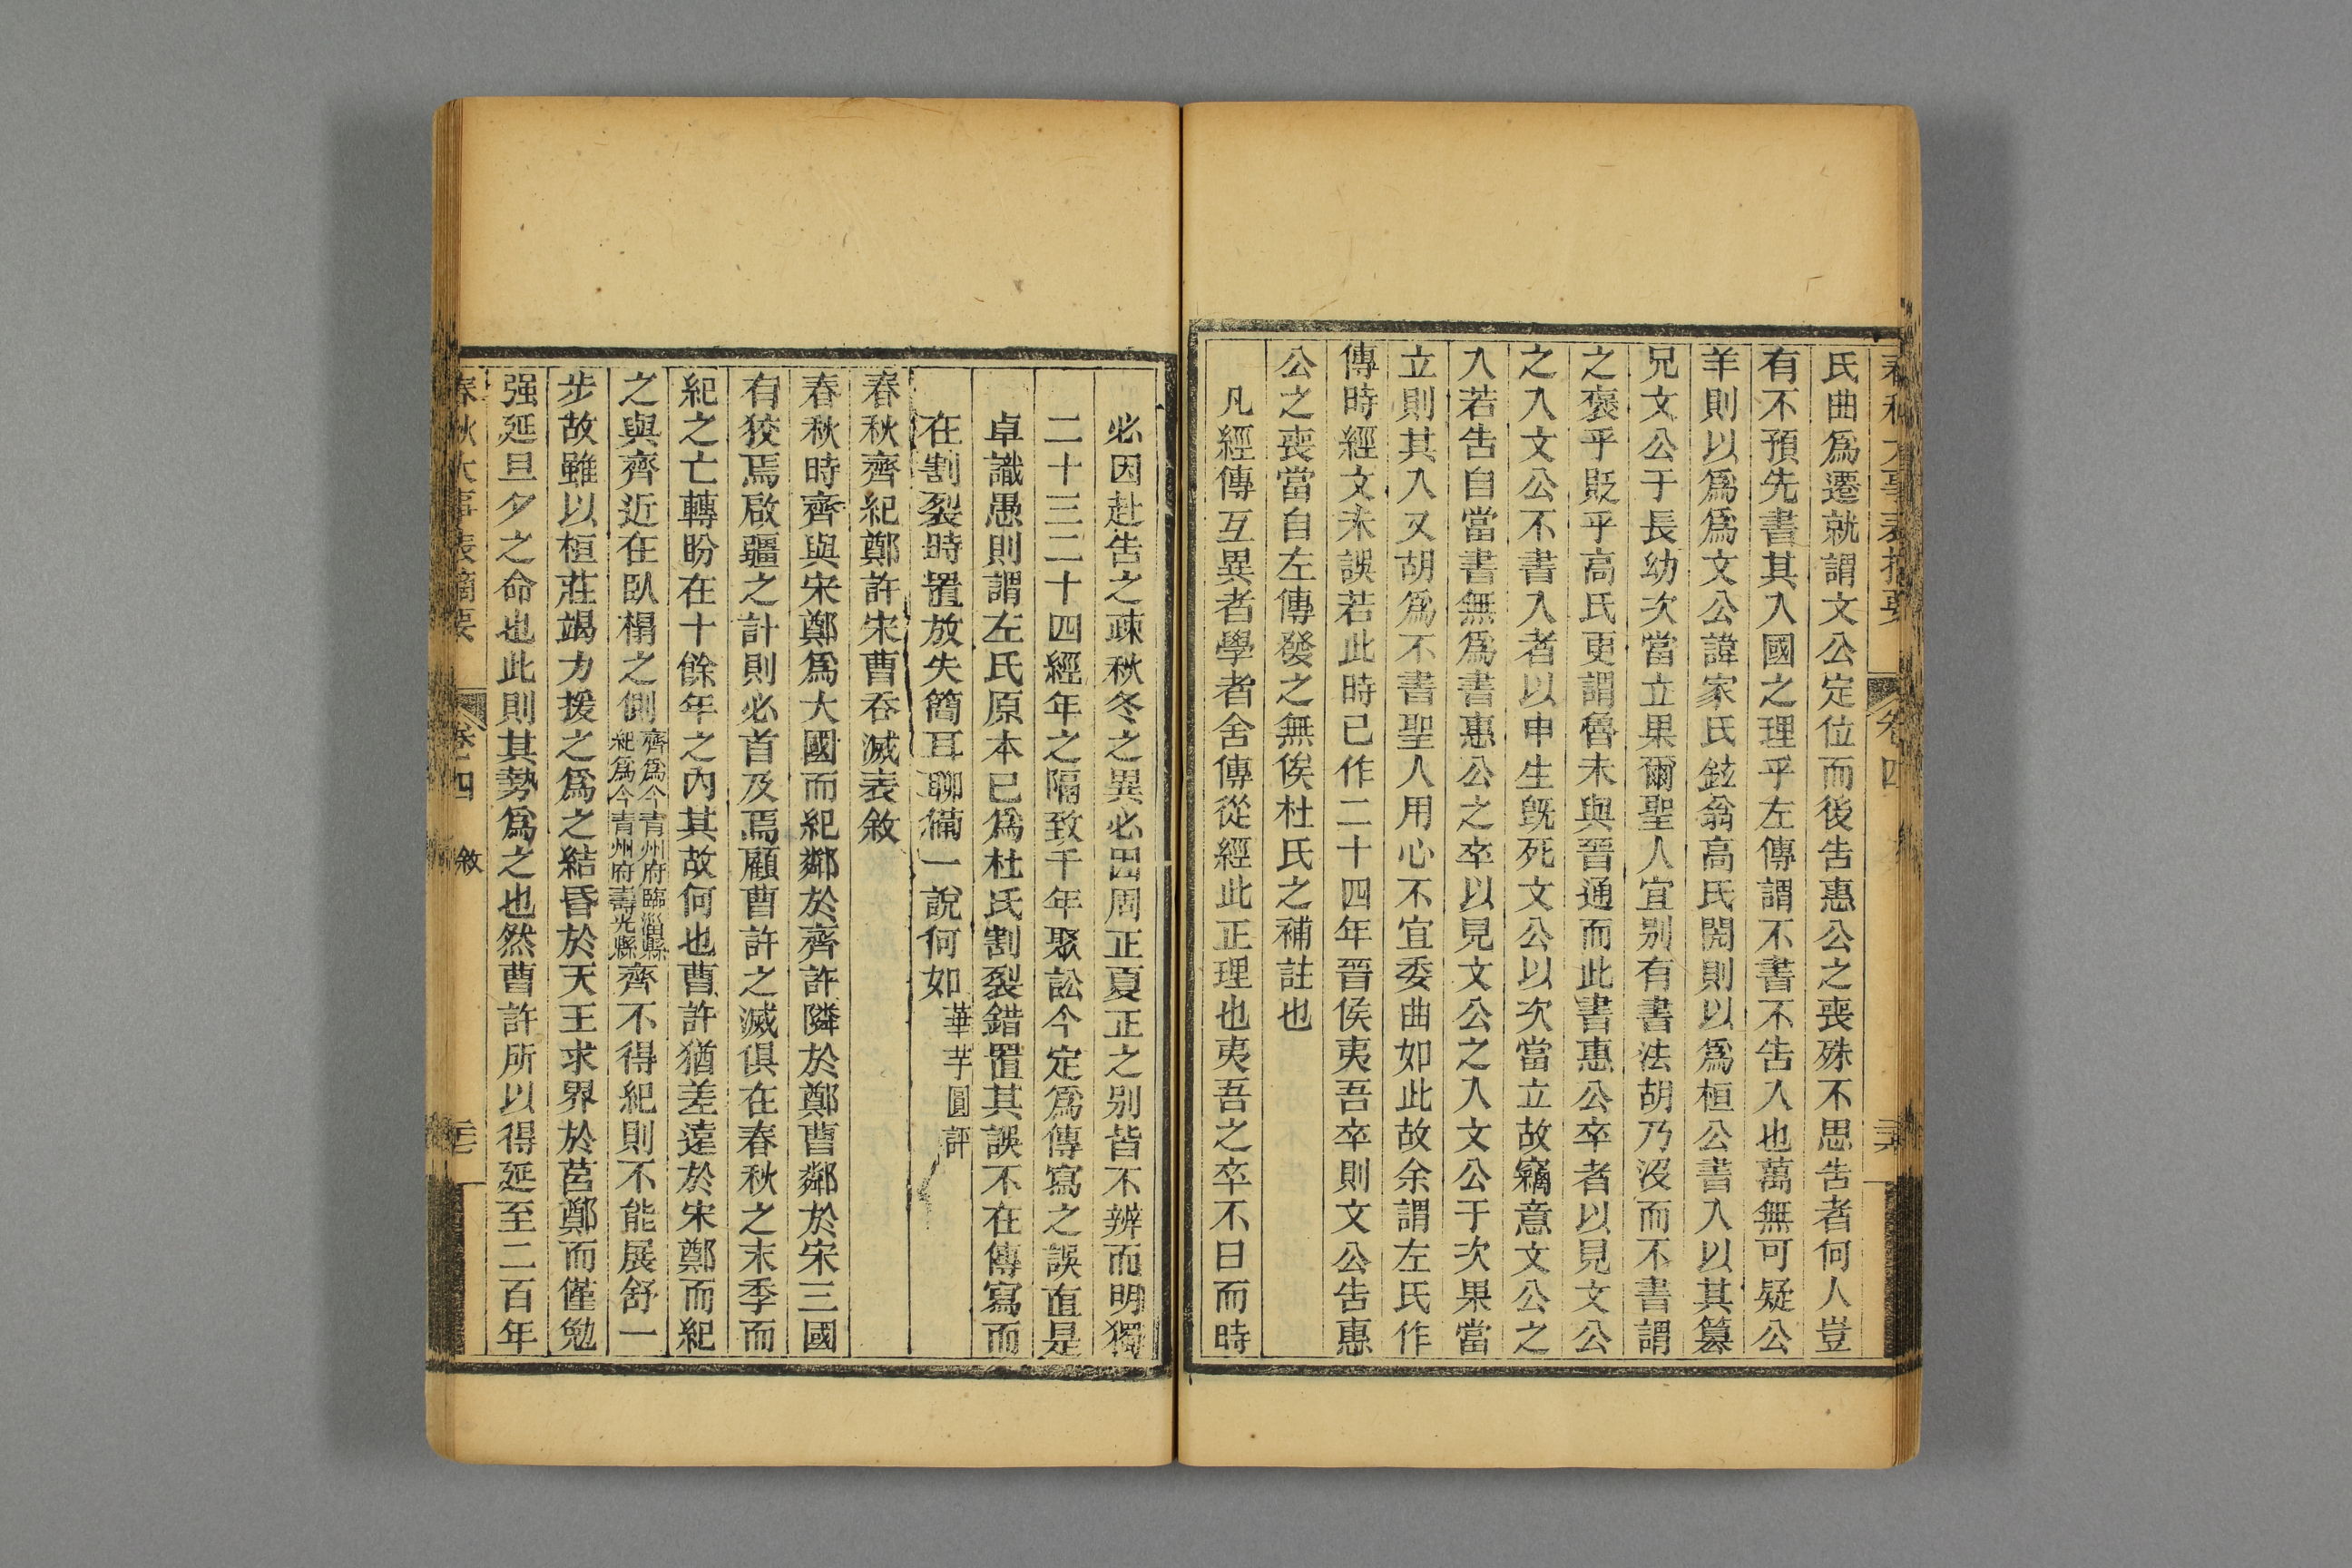 春秋大事表摘要
卷四
氏曲爲遷就謂文公定位而後告惠公之喪殊不思告者何人豈
有不預先書其入國之理乎左傳謂不書不告入也萬無可疑公
羊則以爲爲文公諱家氏鉉翁高氏閌則以爲桓公書入以其篡
兄文公于長幼次當立果爾聖人宜别有書法胡乃沒而不書謂
之褒乎貶乎高氏更謂魯未與晉通而此書惠公卒者以見文公
之入文公不書入者以申生旣死文公以次當立故竊意文公之
入若告自當書無爲書惠公之卒以見文公之入文公于次果當
立則其入又胡爲不書聖人用心不宜委曲如此故余謂左氏作
傳時經文未誤若此時已作二十四年晉侯夷吾卒則文公告惠
公之喪當自左傳發之無俟杜氏之補註也
凡經傳互異者學者舍傳從經此正理也夷吾之卒不日而時
必因赴告之疎秋冬之異必因周正夏正之别皆不辨而明獨
二十三二十四經年之隔致千年聚訟今定爲傳寫之誤直是
卓識愚則謂左氏原本已爲杜氏割裂錯置其誤不在傳寫而
在割裂時置放失簡耳聊備一說何如華芋圓評
春秋齊紀鄭許宋曹吞滅表敘
春秋時齊與宋鄭爲大國而紀鄰於齊許隣於鄭曹鄰於宋三國
有狡焉啟疆之計則必首及焉顧曹許之滅俱在春秋之末季而
紀之亡轉盼在十餘年之內其故何也曹許猶差遠於宋鄭而紀
之與齊近在臥榻之側齊爲今青州府臨淄縣紀爲今青州府壽光縣齊不得紀則不能展舒一
步故雖以桓莊竭力援之爲之結昏於天王求界於莒鄭而僅勉
强延旦夕之命也此則其勢爲之也然曹許所以得延至二百年
春秋大事表摘要
卷四
敘